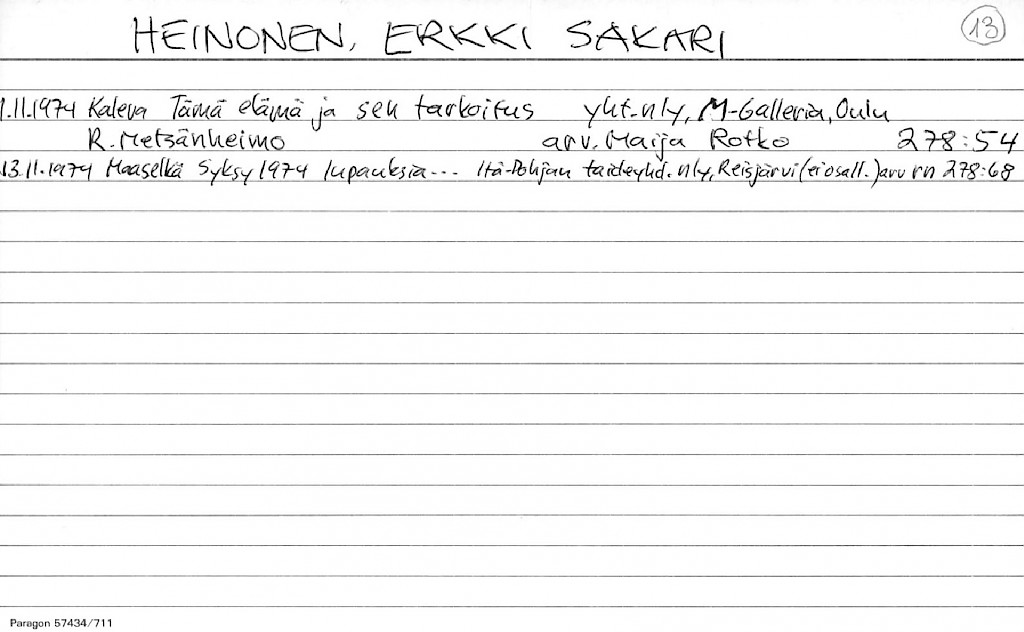 HEINONEN, ERKKI SAKARI 13
1.11.1974 Kaleva Tämä elämä ja sen tarkoitus yht.nly, M-Galleria, Oulu
R. Metsänheimo arv. Maija Rotko 278:54
13.11.1974 Maaselkä Syksy 1974 lupauksia... Itä-Pohjan taideyhd. nly, Reisjärvi (ei osall.) arv rn 278:68
Paragon 57434/711